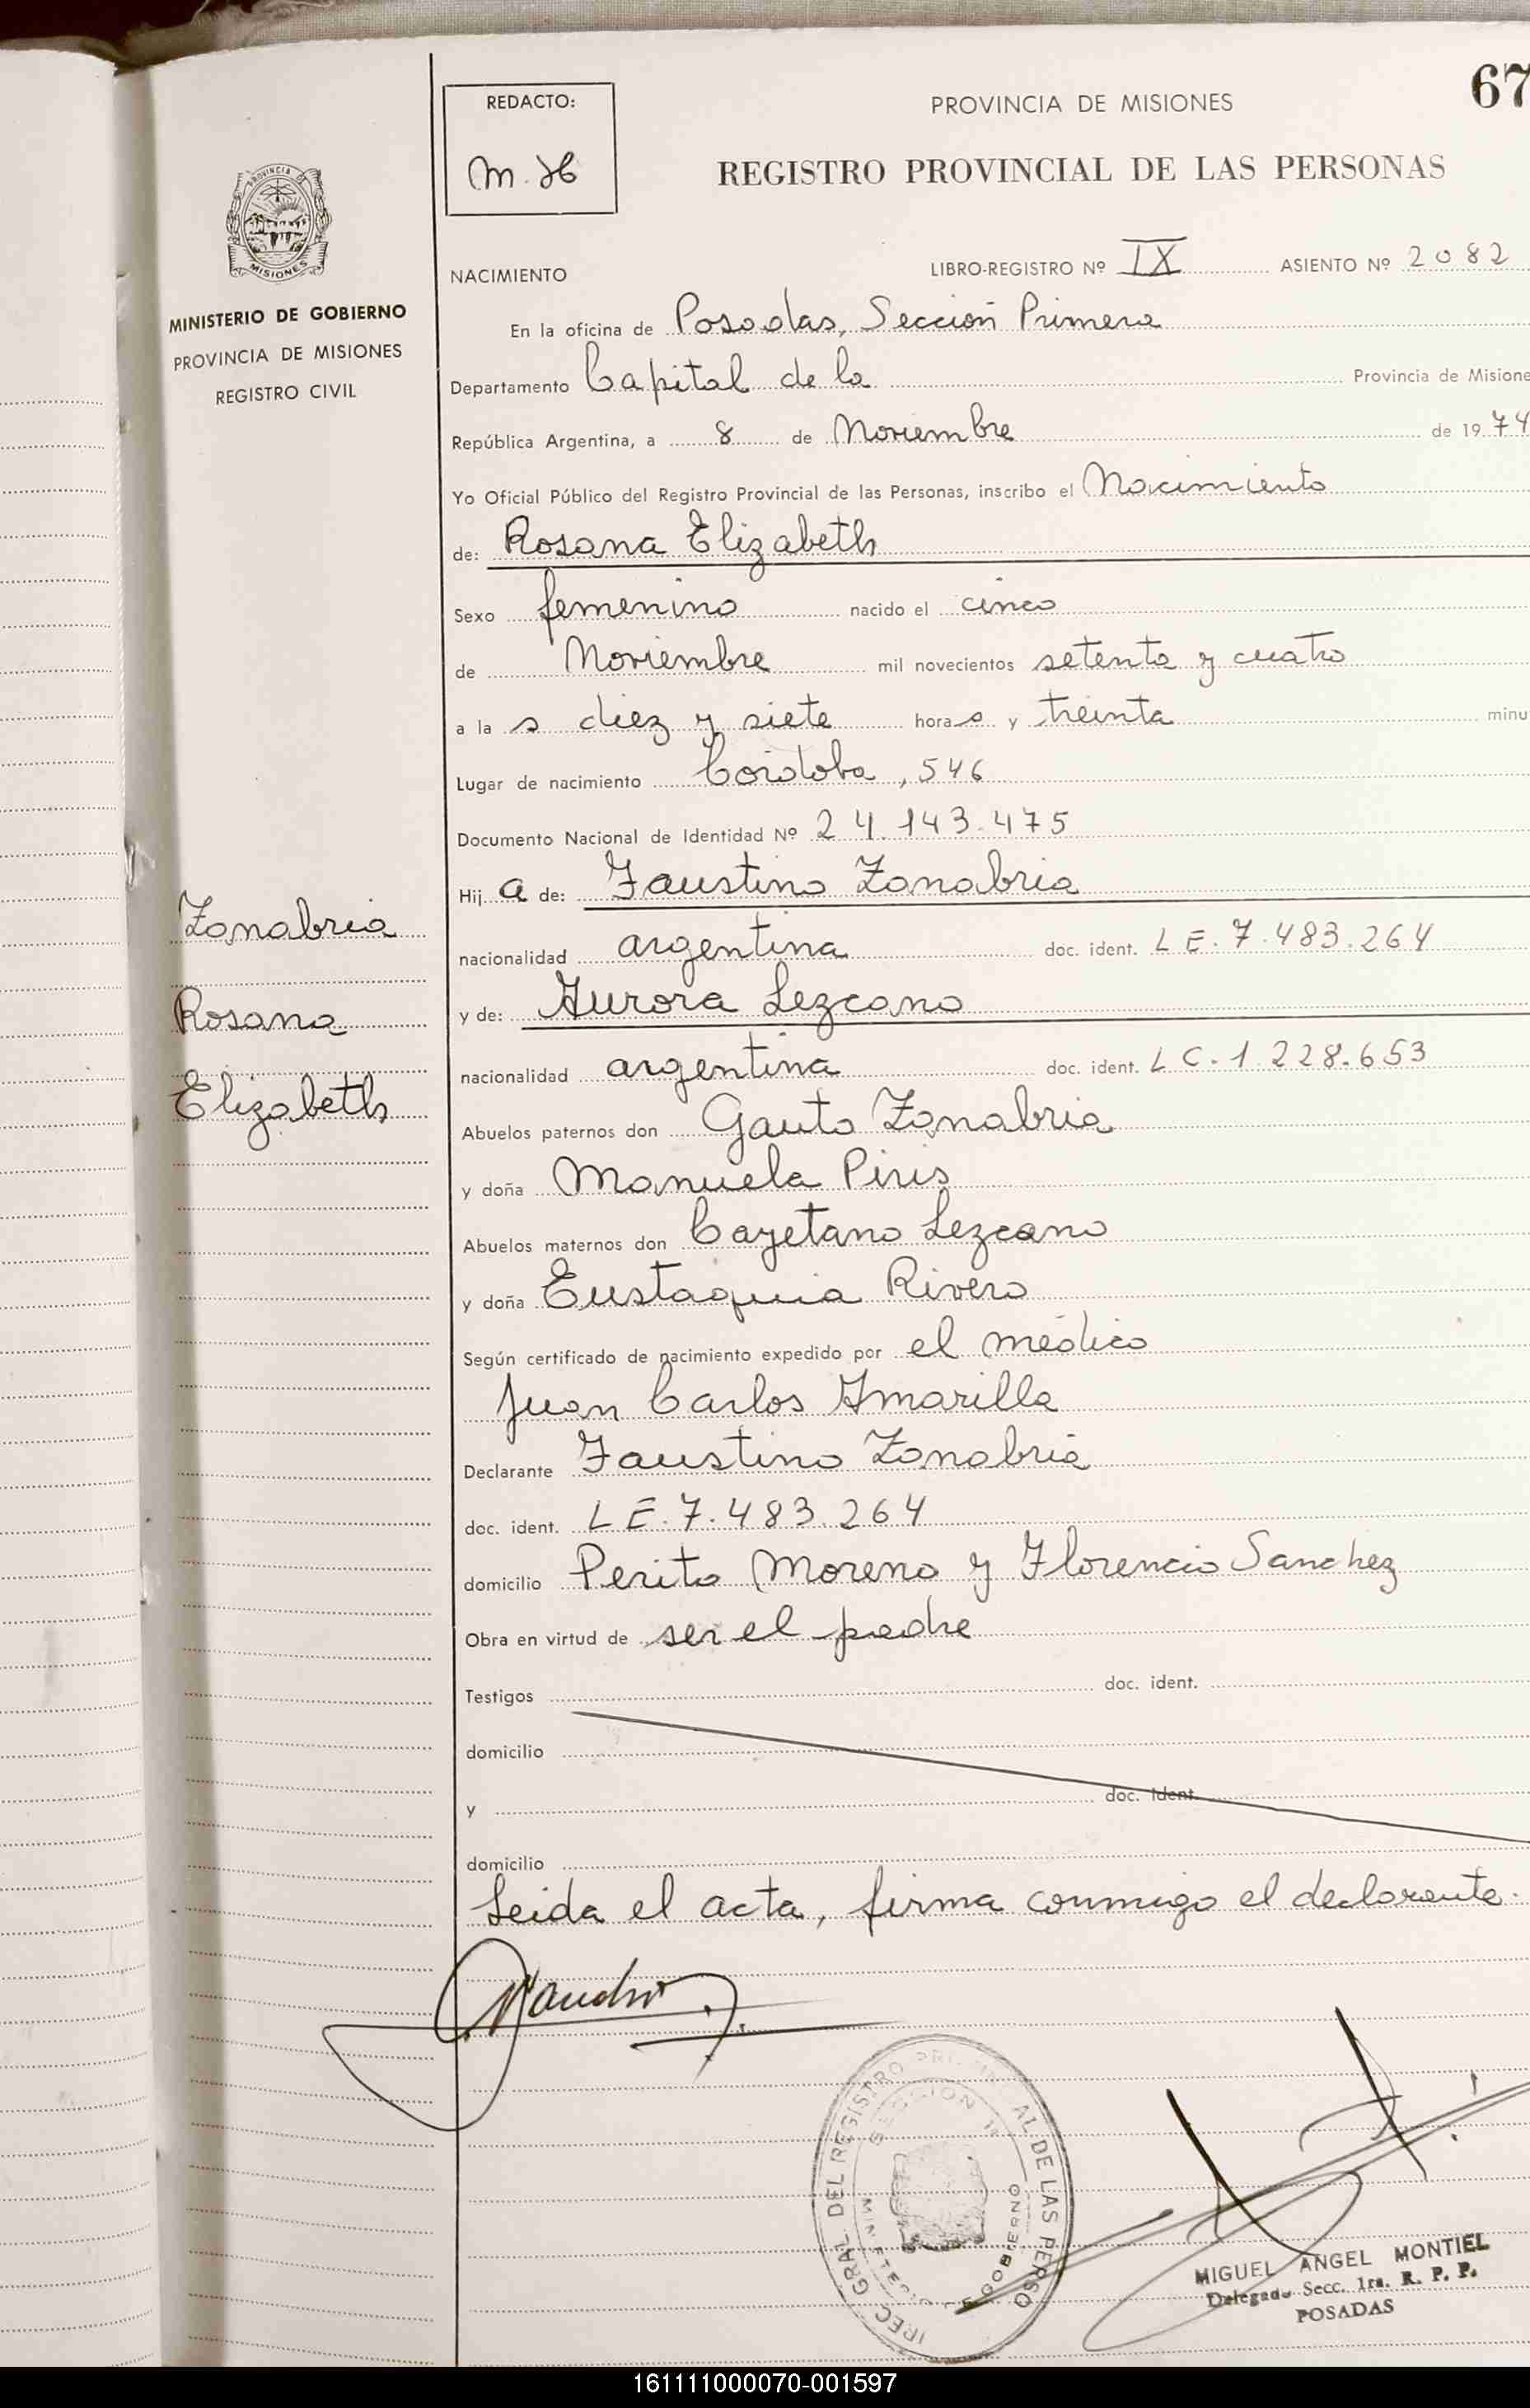 67
REDACTO:
PROVINCIA DE MISIONES
REGISTRO PROVINCIAL DE LAS PERSONAS
PROVINCIA D
MISIONES
MINISTERIO DE GOBIERNO
PROVINCIA DE MISIONES
REGISTRO CIVIL
NACIMIENTO
LIBRO-REGISTRO Nº IX ASIENTO Nº 2082
En la oficina de Posadas, Sección Primera
Departamento Capital de la Provincia de Misione
República Argentina, a 8 de Noviembre de 1974
Yo Oficial Público del Registro Provincial de las Personas, inscribo el Nacimiento
de: Rosana Elizabeth
Sexo femenino nacido el cinco
de Noviembre mil novecientos setenta y cuatro
a la s diez y siete hora s y treinta minu
Lugar de nacimiento Córdoba, 546
Documento Nacional de Identidad Nº 24.143.475
Hij a de: Faustino Zanabria
nacionalidad argentina doc. ident. L E. 7.483.264
y de: Aurora Lezcano
nacionalidad argentina doc. ident. L C. 1.228.653
Abuelos paternos don Gauto Zanabria
y doña Manuela Piris
Abuelos maternos don Cayetano Lezcano
y doña Eustaquia Rivero
Según certificado de nacimiento expedido por el médico
Juan Carlos Amarilla
Declarante Faustino Zanabria
doc. ident. L E. 7.483.264
domicilio Perito Moreno y Florencio Sanchez
Obra en virtud de ser el padre
Testigos doc. ident.
domicilio
y doc. ident.
domicilio
Leida el acta, firma conmigo el declarante.
Zanabria
Rosana
Elizabeth
GRAL. DEL REGISTRO PROVINCIAL DE LAS PERSO
SECCION 1ª
MINISTERIO DE GOBIERNO
MIGUEL ANGEL MONTIEL
Delegado Secc. 1ra. R. P. P.
POSADAS
161111000070-001597